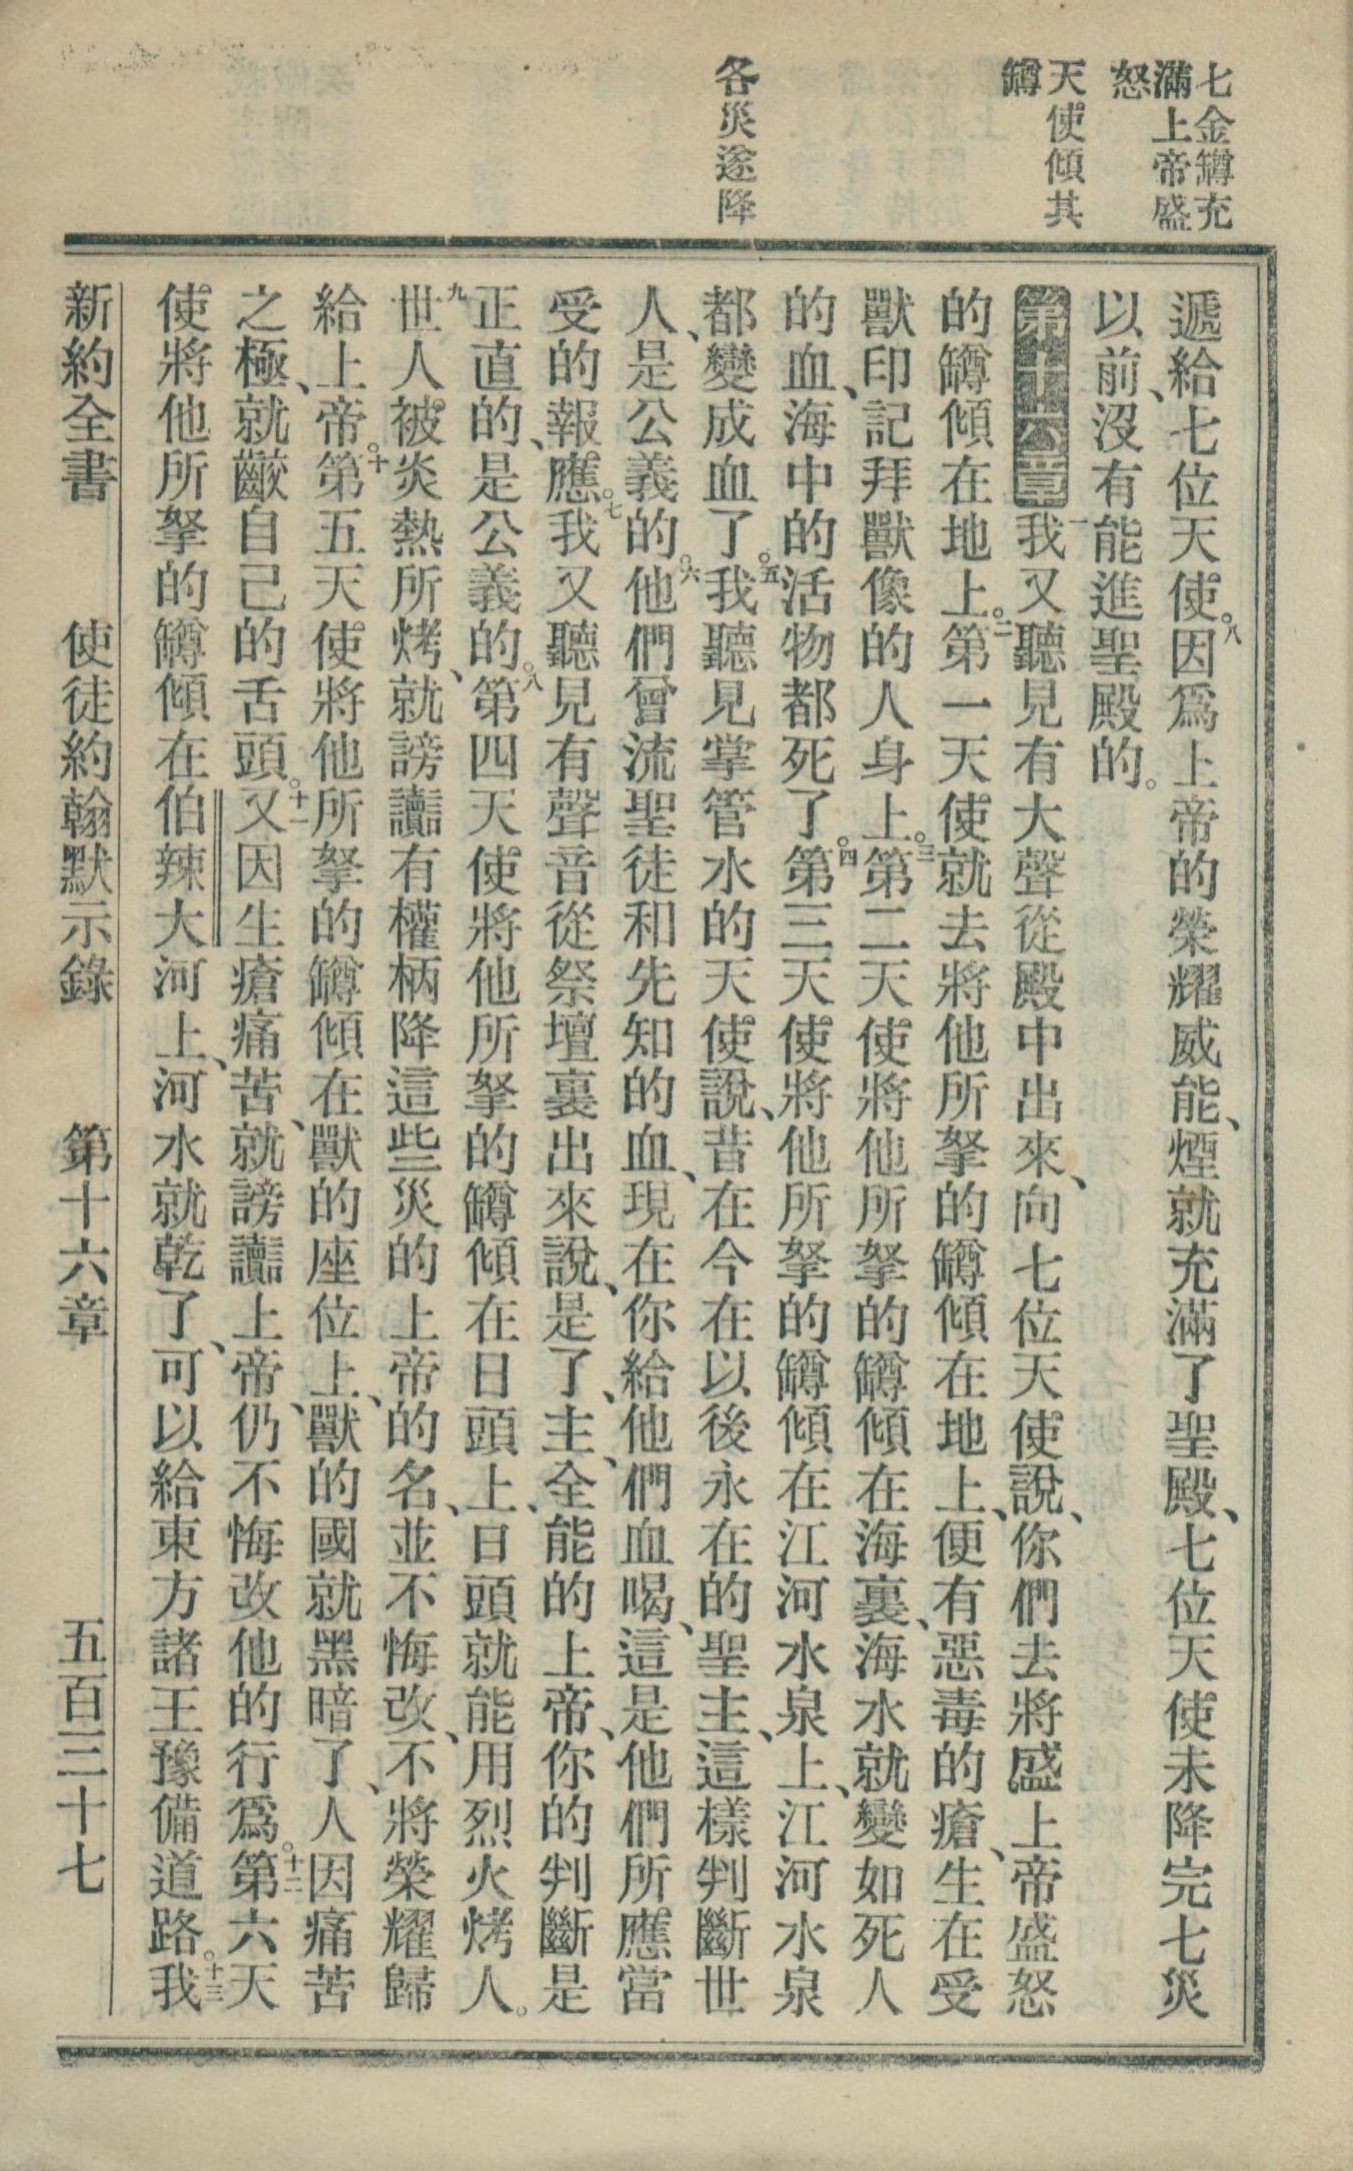 七金罇充
滿上帝盛
怒
天使傾其
罇
各災遂降
遞給七位天使。八因爲上帝的榮耀威能、煙就充滿了聖殿、七位天使未降完七災
以前、沒有能進聖殿的。
第十六章一我又聽見有大聲從殿中出來、向七位天使說、你們去將盛上帝盛怒
的罇傾在地上。二第一天使就去將他所拏的罇傾在地上、便有惡毒的瘡、生在受
獸印記拜獸像的人身上。三第二天使將他所拏的罇傾在海裏、海水就變如死人
的血、海中的活物都死了。四第三天使將他所拏的罇傾在江河水泉上、江河水泉
都變成血了。五我聽見掌管水的天使說、昔在今在以後永在的聖主、這樣判斷世
人、是公義的。六他們曾流聖徒和先知的血、現在你給他們血喝、這是他們所應當
受的報應。七我又聽見有聲音從祭壇裏出來說、是了、主、全能的上帝、你的判斷是
正直的、是公義的。八第四天使將他所拏的罇傾在日頭上、日頭就能用烈火烤人。
九世人被炎熱所烤、就謗讟有權柄降這些災的上帝的名、並不悔改、不將榮耀歸
給上帝。十第五天使將他所拏的罇傾在獸的座位上、獸的國就黑暗了、人因痛苦
之極、就齩自己的舌頭。十一又因生瘡痛苦、就謗讟上帝、仍不悔改他的行爲。十二第六天
使將他所拏的罇傾在伯辣大河上、河水就乾了、可以給東方諸王豫備道路。十三我
新約全書　使徒約翰默示錄　第十六章　五百三十七